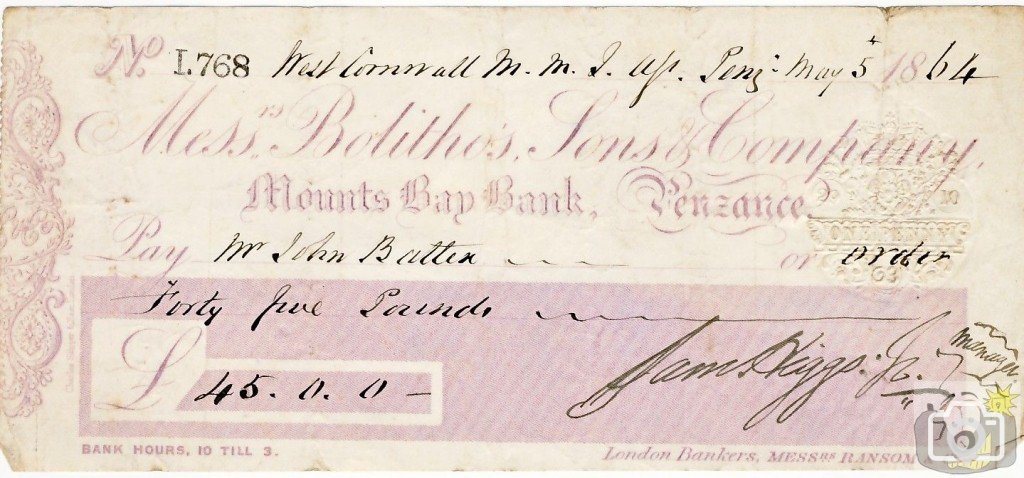 No. I.768 West Cornwall M. M. I. Ass. Penz. May 5 1864
Messrs. Bolitho's, Sons & Company,
Mounts Bay Bank, Penzance.
10
ONE PENNY
63
Pay Mr John Batten or order
Forty five Pounds
£ 45. 0. 0
Sam Higgs. Jr. manager
BANK HOURS, 10 TILL 3.
London Bankers, MESSRS RANSOM